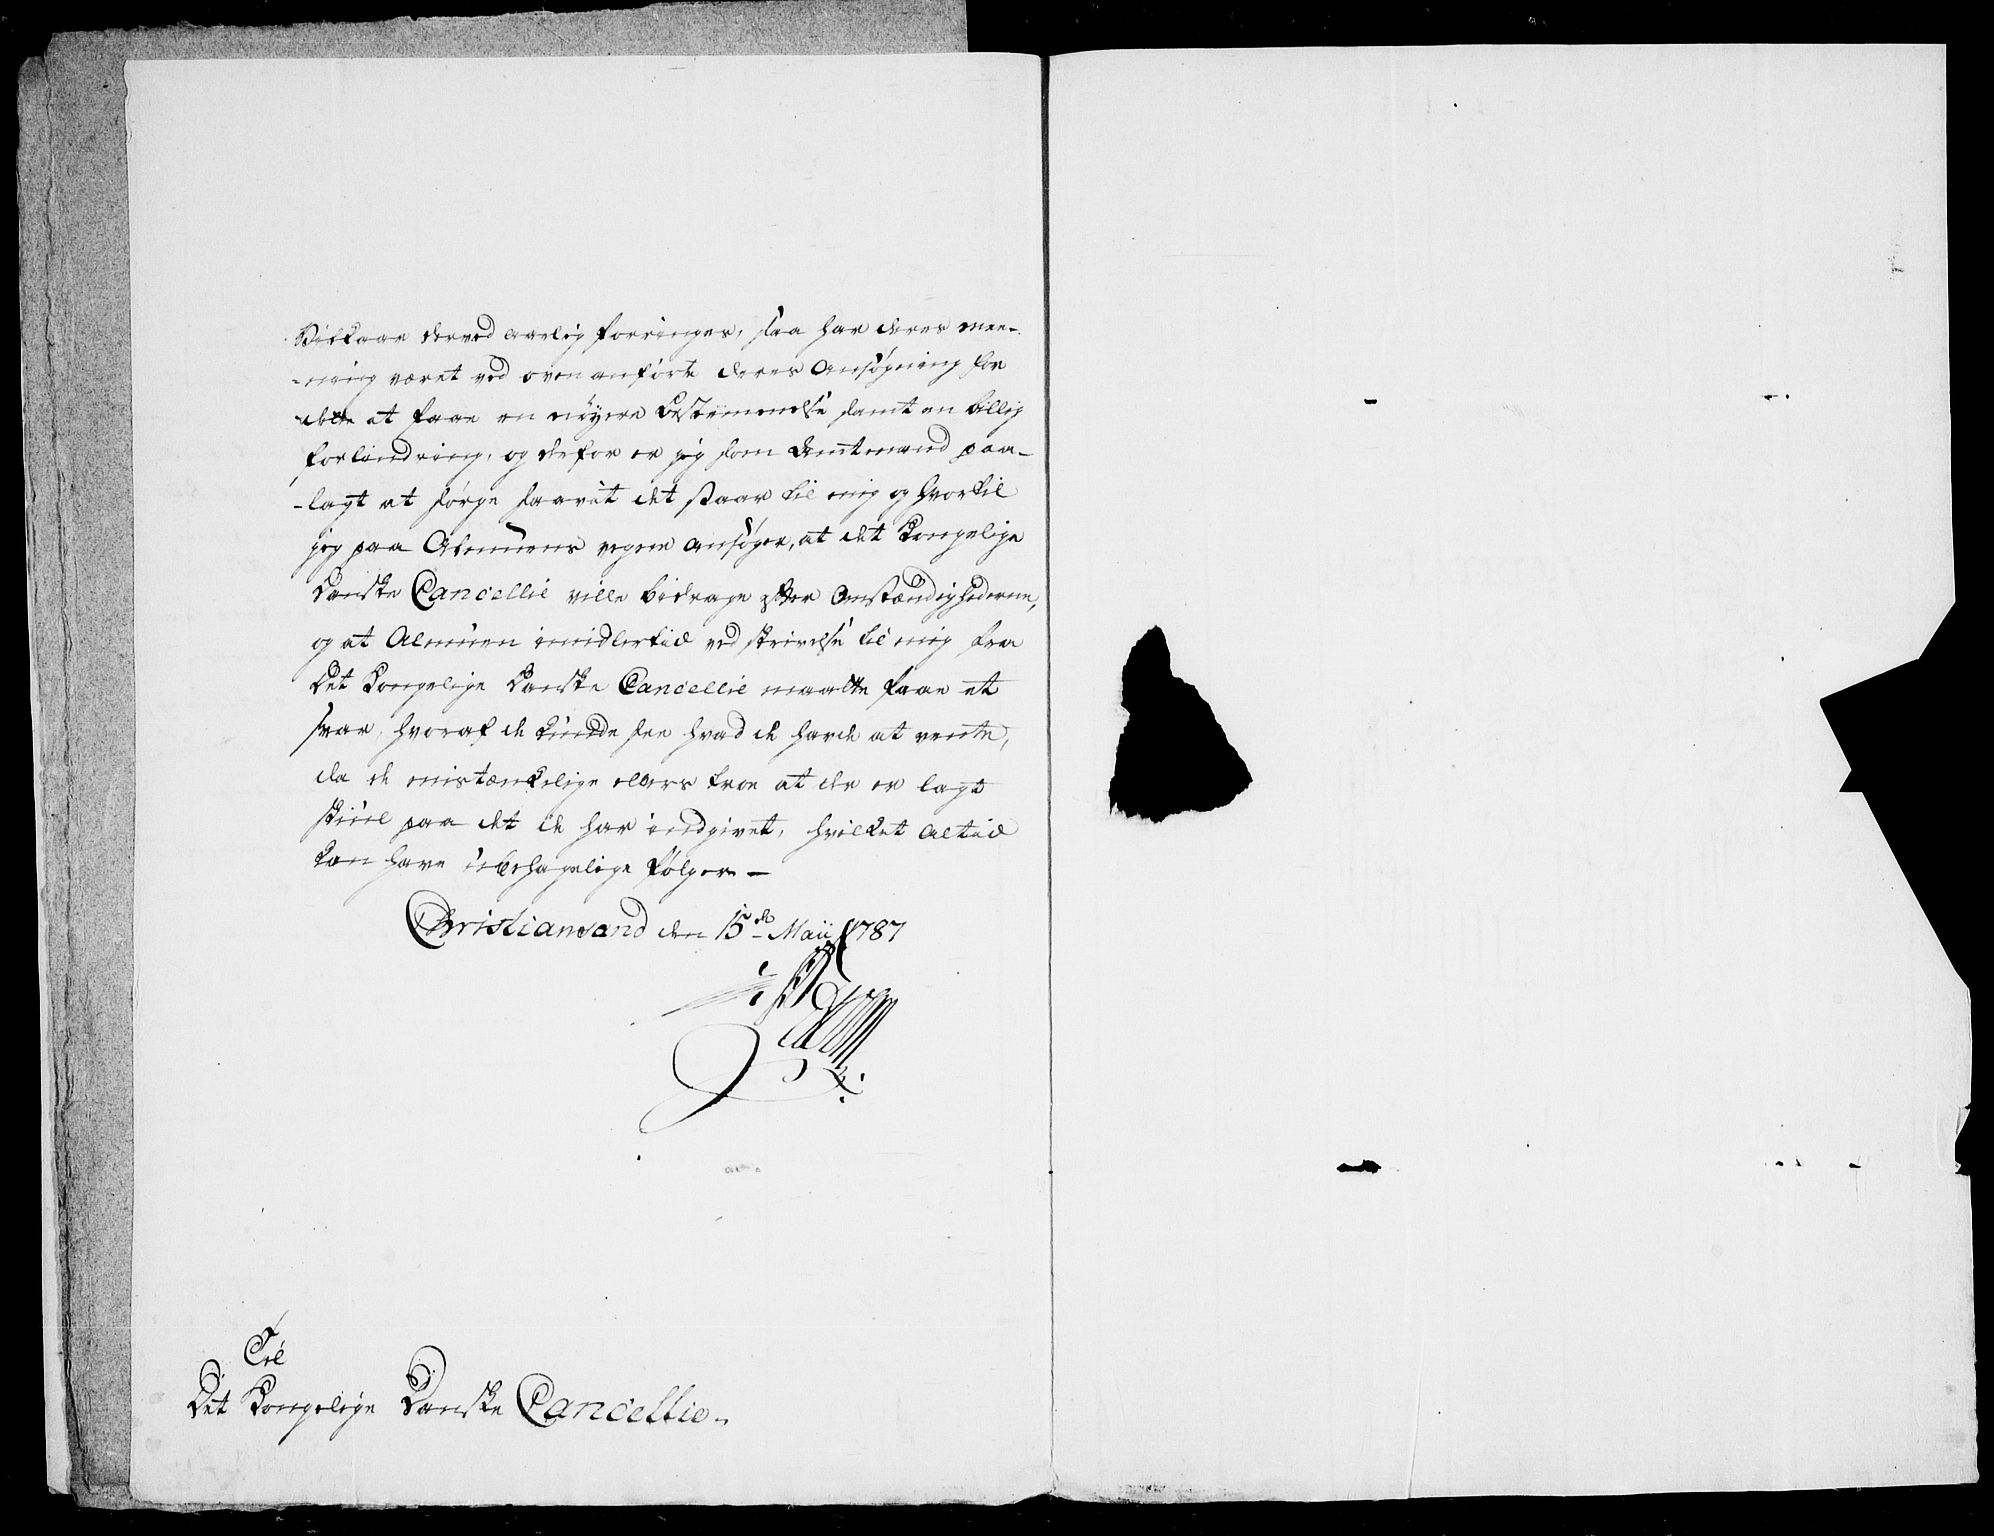 Vilkaar derved aarlig forringes, saa har deres mee-
-ning været ved oven anførte deres Ansøgning for
dette at faae en nøyere bestemmelse samt en billig
forlindring, og defor er jeg som Amtmand paa-
-lagt at sørge saavit det staar til mig og hvortil
jeg paa Almuens vegne ansøger, at det Kongelige
Danske Cancellie ville bidrage efter Omstændighederne,
og at Almuen imidlertid ved skrivelse til mig fra
Det Kongelige Danske Cancellie maatte faae et
svar, hvoraf de kunde see hvad de havde at vente,
da de mistænkelige ellers troe at der er lagt
skiul paa det de har indgivet, hvilket altid
kan have ubehagelige følger –
Christiansand den 15de Maii 1787
Til
Det Kongelige Danske Cancellie.